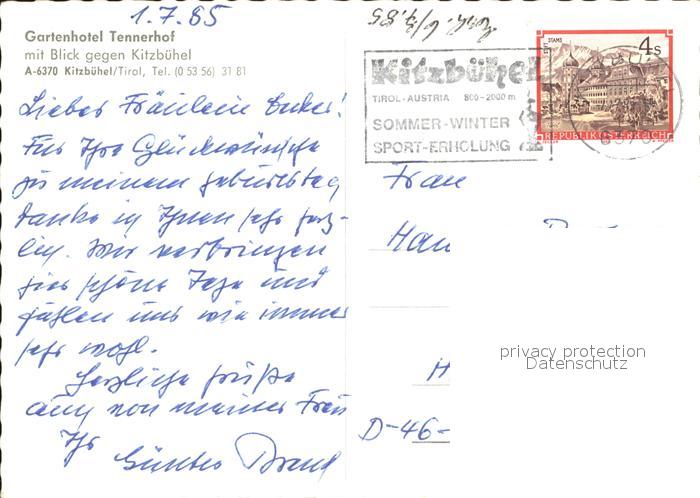 1.7.85
Gartenhotel Tennerhof
mit Blick gegen Kitzbühel
A-6370 Kitzbühel/Tirol, Tel. (0 53 56) 31 81
Liebes Fräulein
Für Ihre Glückwünsche
zu meinem Geburtstag
danke ich Ihnen sehr herz-
lich. Wir verbringen
hier schöne Tage und
fühlen uns wie immer
sehr wohl.
Herzliche Grüße
auch von meiner Frau
Ihr
Günter
6/7.85
Kitzbühel
TIROL-AUSTRIA 800-2000 m
SOMMER-WINTER
SPORT-ERHOLUNG
STIFT STAMS
4 S
REPUBLIK ÖSTERREICH
Frau
Han
H
D-46-
privacy protection
Datenschutz